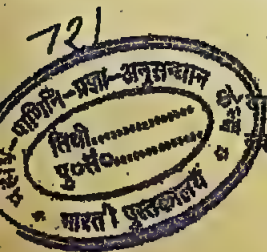 721
-पाणिनि-प्रज्ञा-अनुसन्धान
तिथी..............
पु०सं०..............
* भारती पुस्तकालय *